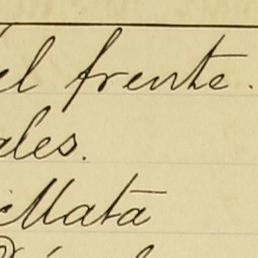 el frente.
ales.
Mata